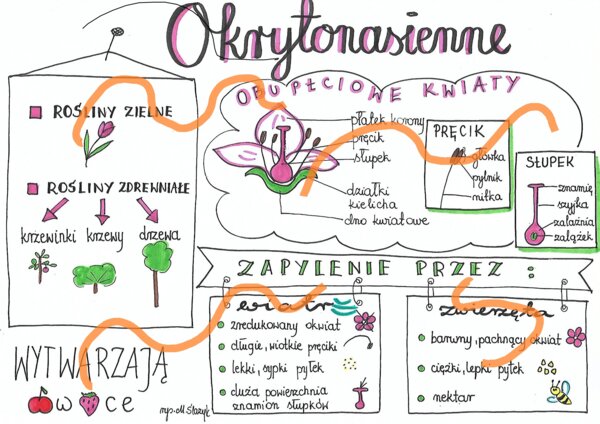 Okrytonasienne
ROŚLINY ZIELNE
ROŚLINY ZDREWNIAŁE
krzewinki krzewy drzewa
OBUPŁCIOWE KWIATY
płatek korony
pręcik
słupek
działki
kielicha
dno kwiatowe
PRĘCIK
główka
pylnik
nitka
SŁUPEK
znamię
szyjka
zalążnia
zalążek
ZAPYLENIE PRZEZ:
wiatr
zredukowany okwiat
długie, wiotkie pręciki
lekki, sypki pyłek
duża powierzchnia
znamion słupków
zwierzęta
barwny, pachnący okwiat
ciężki, lepki pyłek
nektar
WYTWARZAJĄ
owoce